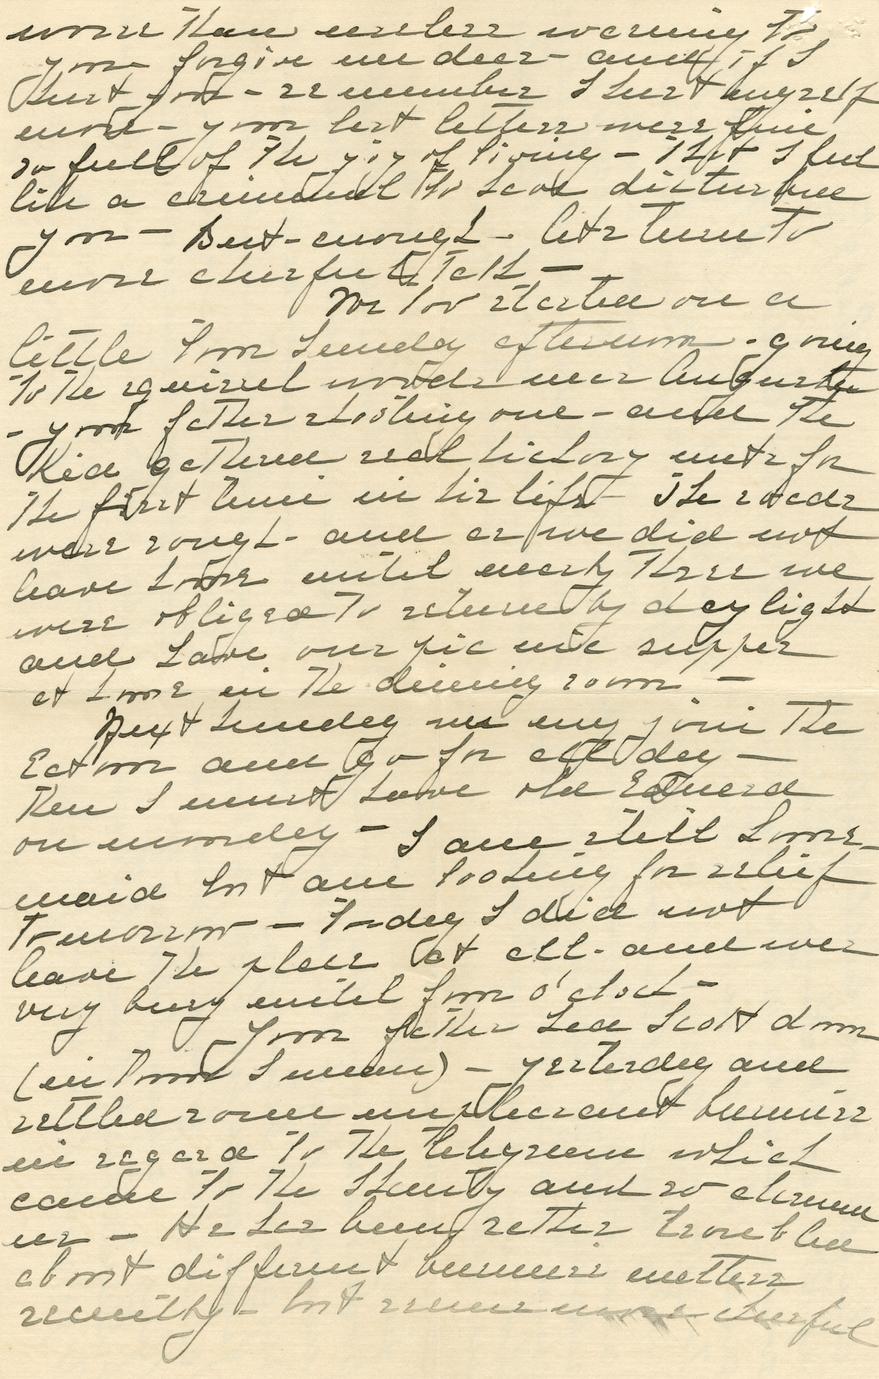 more than useless worrying to
you forgive me dear - and if I
hurt you - remember I hurt myself
more - your last letters were fine
so full of the joy of living - that I feel
like a criminal to have disturbed
you - But - enough - lets turn to
more cheerful talk -
We too started on a
little tour Sunday afternoon - going
to the squirrel woods near Augusta
- your father shooting one - and the
Kid gathered real hickory nuts for
the first time in his life - The roads
were rough - and as we did not
leave home until nearly three we
were obliged to return by daylight
and have our pic nic supper
at home in the dining room -
Next Sunday we may join the
Eatons and go for all day -
Then I must have old Edward
on monday - I am still house-
maid but am looking for relief
tomorrow - Today I did not
leave the place at all - and was
very busy until four o'clock -
Your father had Scott down
(in town I mean) - yesterday and
settled some unpleasant business
in regard to the telegram which
came to the Shanty and so alarmed
us - He has been rather troubled
about different business matters
recently - but seems more cheerful